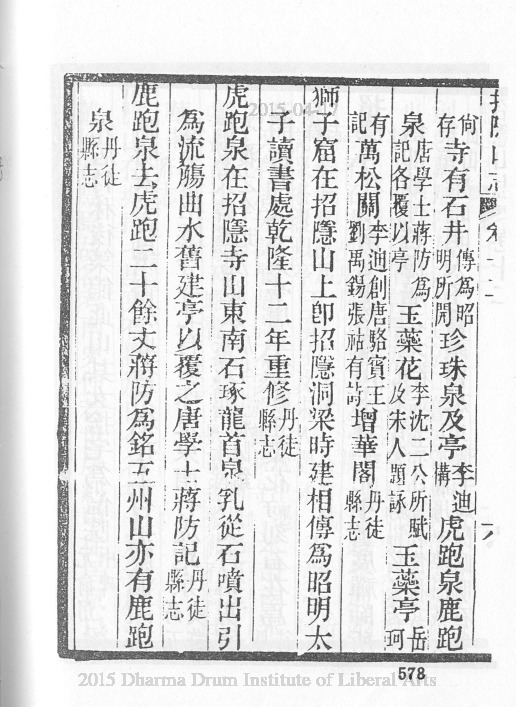 招隱山志 卷十二
尚存寺有石井傳為昭明所開珍珠泉及亭李迪搆虎跑泉鹿跑
泉唐學士蔣防為記各覆以亭玉蘂花李沈二公所賦及宋人題詠玉蘂亭岳珂
有記萬松關李迪創唐駱賓王劉禹錫張祜有詩增華閣丹徒縣志
獅子窟在招隱山上卽招隱洞梁時建相傳為昭明太
子讀書處乾隆十二年重修丹徒縣志
虎跑泉在招隱寺山東南石琢龍首泉乳從石噴出引
為流觴曲水舊建亭以覆之唐學士蔣防記丹徒縣志
鹿跑泉去虎跑二十餘丈蔣防為銘五州山亦有鹿跑
泉丹徒縣志
578
2015 Dharma Drum Institute of Liberal Arts